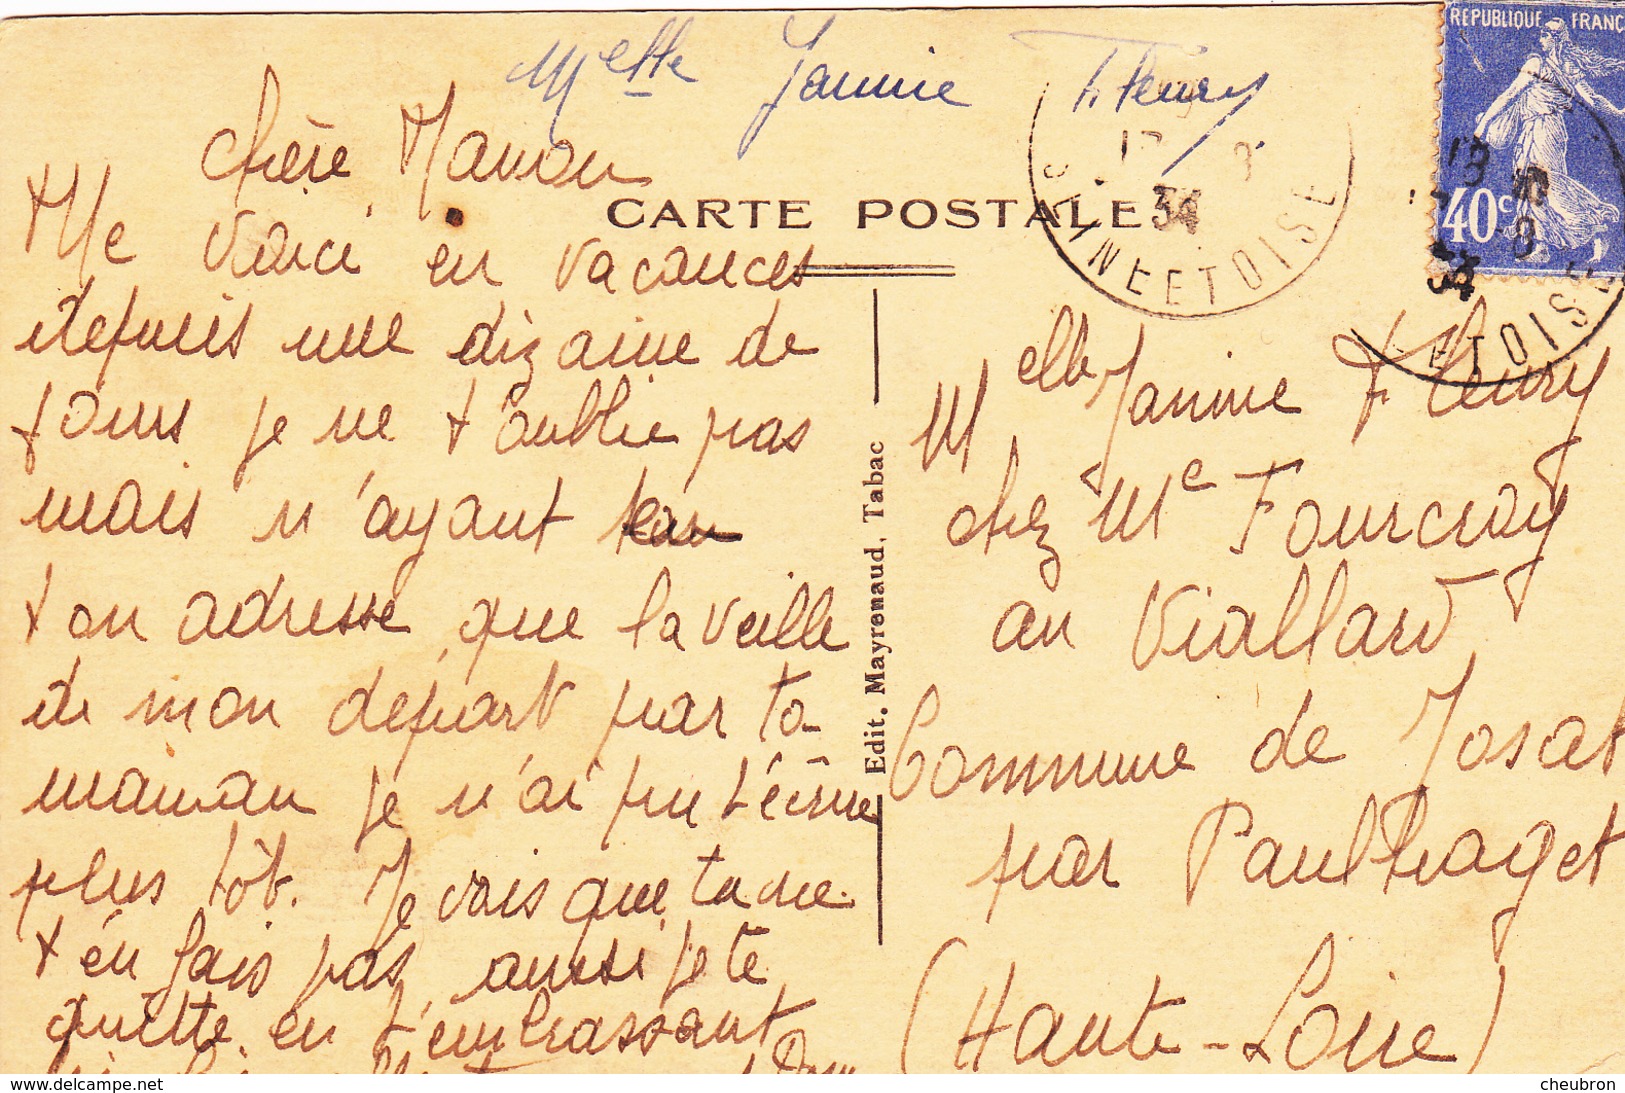 Melle Jannie Fleury
chère Manon
CARTE POSTALE
Me voici en vacances
depuis une dizaine de
jours je ne t'oublie pas
mais n'ayant
ton adresse que la veille
de mon départ par ta
maman je n'ai pu t'écrire
plus tôt. Je vois que tu ne
t'en fais pas, aussi je te
quitte en t'embrassant
Edit. Mayrenaud, Tabac
REPUBLIQUE FRANÇ
40c
34
SEINE ET OISE
13
8
34
ET OISE
Melle Jannine Fleury
chez Me Fourcroy
au Viallard
Commune de Josat
par Paulhaget
(Haute-Loire)
www.delcampe.net
cheubron